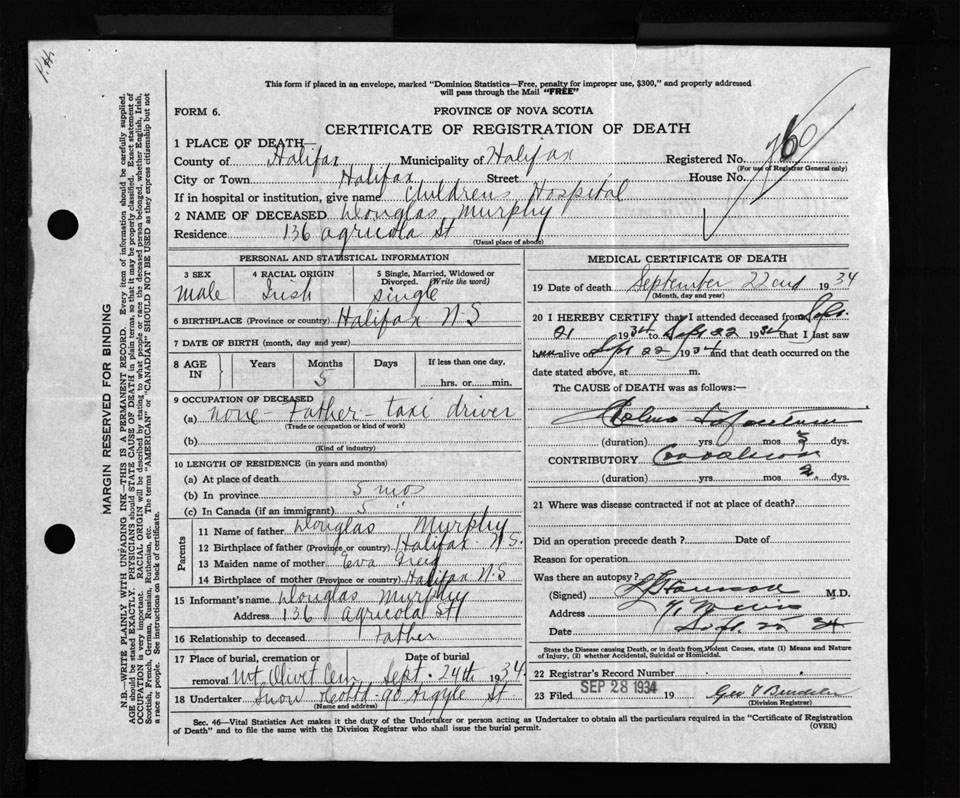 This form if placed in an envelope, marked "Dominion Statistics—Free, penalty for improper use, $300," and properly addressed
will pass through the Mail "FREE"
FORM 6.
PROVINCE OF NOVA SCOTIA
CERTIFICATE OF REGISTRATION OF DEATH
1 PLACE OF DEATH—
County of Halifax Municipality of Halifax Registered No.
(For use of Registrar General only)
City or Town Halifax Street House No.
If in hospital or institution, give name Childrens Hospital
2 NAME OF DECEASED Douglas Murphy
Residence 136 Agricola St
(Usual place of abode)
PERSONAL AND STATISTICAL INFORMATION
3 SEX Male
4 RACIAL ORIGIN Irish
5 Single, Married, Widowed or Divorced. (Write the word) Single
6 BIRTHPLACE (Province or country) Halifax N-S
7 DATE OF BIRTH (month, day and year)
8 AGE IN Years Months 5 Days If less than one day,
hrs. or min.
9 OCCUPATION OF DECEASED
(a) none - Father - taxi driver
(Trade or occupation or kind of work)
(b)
(Kind of industry)
10 LENGTH OF RESIDENCE (in years and months)
(a) At place of death
(b) In province 5 mos
(c) In Canada (if an immigrant) 5 "
Parents
11 Name of father Douglas Murphy
12 Birthplace of father (Province or country) Halifax N.S.
13 Maiden name of mother Eva
14 Birthplace of mother (Province or country) Halifax N.S
15 Informant's name Douglas Murphy
Address 136 Agricola St
16 Relationship to deceased Father
17 Place of burial, cremation or removal Mt. Olivet Cem Date of burial Sept. 24th 1934
18 Undertaker Snow 90 Argyle St
(Name and address)
MEDICAL CERTIFICATE OF DEATH
19 Date of death September 22nd 1934
(Month, day and year)
20 I HEREBY CERTIFY that I attended deceased from Sept.
21 1934 to Sept 22 1934 that I last saw
alive on Sept 22 1934 and that death occurred on the
date stated above, at m.
The CAUSE OF DEATH was as follows:
(duration) yrs. mos. dys.
CONTRIBUTORY
(duration) yrs. mos. 2 dys.
21 Where was disease contracted if not at place of death?
Did an operation precede death? Date of
Reason for operation
Was there an autopsy?
(Signed) M.D.
Address
Date Sept. 34
State the Disease causing Death, or in death from Violent Causes, state (1) Means and Nature
of Injury, (2) whether Accidental, Suicidal or Homicidal.
22 Registrar's Record Number
23 Filed SEP 28 1934 19
(Division Registrar)
Sec. 46—Vital Statistics Act makes it the duty of the Undertaker or person acting as Undertaker to obtain all the particulars required in the "Certificate of Registration
of Death" and to file the same with the Division Registrar who shall issue the burial permit.
(OVER)
MARGIN RESERVED FOR BINDING
N.B.—WRITE PLAINLY WITH UNFADING INK—THIS IS A PERMANENT RECORD. Every item of information should be carefully supplied.
AGE should be stated EXACTLY. PHYSICIANS should STATE CAUSE OF DEATH in plain terms, so that it may be properly classified. Exact statement of
OCCUPATION is very important. RACIAL ORIGIN will be described by stating to what people or race the deceased person belonged, whether English, Irish,
Scottish, French, German, Russian, Ruthenian, etc. The terms "AMERICAN" or "CANADIAN" SHOULD NOT BE USED as they express citizenship but not
a race or people. See instructions on back of certificate.